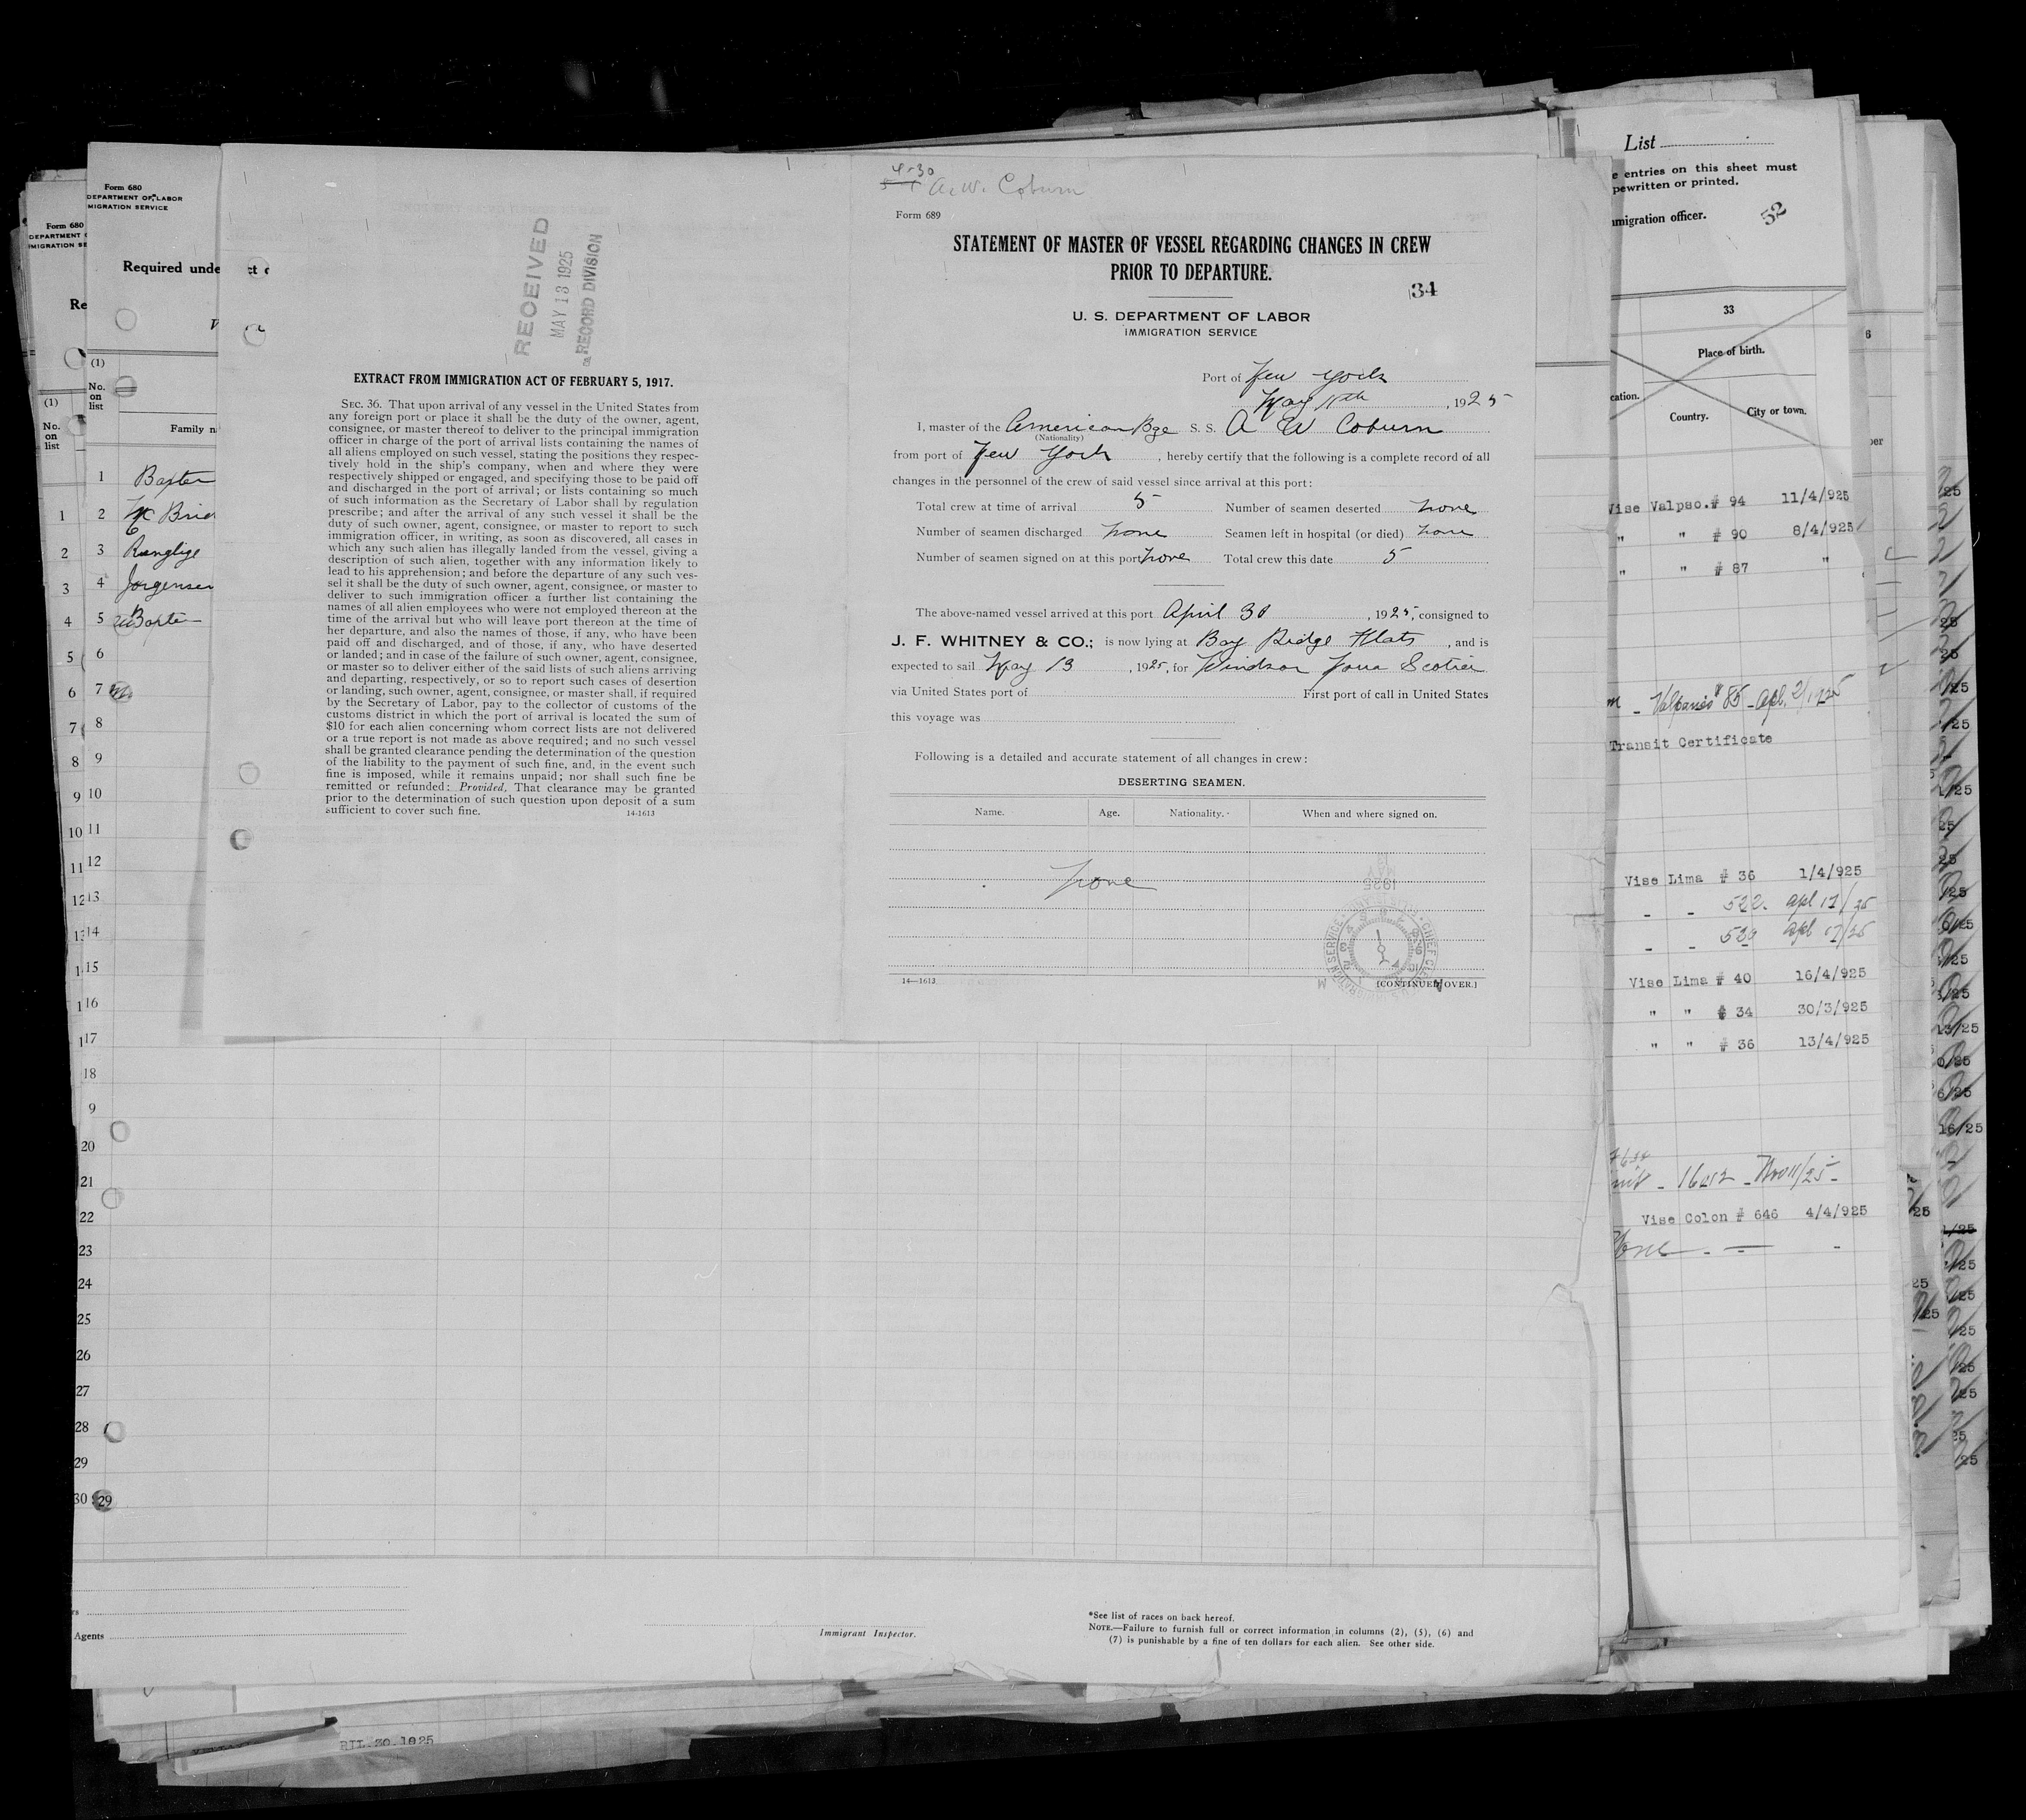 Form 680
DEPARTMENT OF LABOR
MIGRATION SERVICE
Form 680
DEPARTMENT
IMMIGRATION SE
Required unde
Re
(1)
No.
on
list
Family n
(1)
No.
on
list
1 Baxter
2 Mc Brid
3 Ranglige
4 Jorgensen
5 Baxte
6
7
8
9
10
11
12
13
14
15
16
17
18
9
20
21
22
23
24
25
26
27
28
29
30 29
RECEIVED
MAY 13 1925
RECORD DIVISION
EXTRACT FROM IMMIGRATION ACT OF FEBRUARY 5, 1917.
SEC. 36. That upon arrival of any vessel in the United States from
any foreign port or place it shall be the duty of the owner, agent,
consignee, or master thereof to deliver to the principal immigration
officer in charge of the port of arrival lists containing the names of
all aliens employed on such vessel, stating the positions they respec-
tively hold in the ship's company, when and where they were
respectively shipped or engaged, and specifying those to be paid off
and discharged in the port of arrival; or lists containing so much
of such information as the Secretary of Labor shall by regulation
prescribe; and after the arrival of any such vessel it shall be the
duty of such owner, agent, consignee, or master to report to such
immigration officer, in writing, as soon as discovered, all cases in
which any such alien has illegally landed from the vessel, giving a
description of such alien, together with any information likely to
lead to his apprehension; and before the departure of any such ves-
sel it shall be the duty of such owner, agent, consignee, or master to
deliver to such immigration officer a further list containing the
names of all alien employees who were not employed thereon at the
time of the arrival but who will leave port thereon at the time of
her departure, and also the names of those, if any, who have been
paid off and discharged, and of those, if any, who have deserted
or landed; and in case of the failure of such owner, agent, consignee,
or master so to deliver either of the said lists of such aliens arriving
and departing, respectively, or so to report such cases of desertion
or landing, such owner, agent, consignee, or master shall, if required
by the Secretary of Labor, pay to the collector of customs of the
customs district in which the port of arrival is located the sum of
$10 for each alien concerning whom correct lists are not delivered
or a true report is not made as above required; and no such vessel
shall be granted clearance pending the determination of the question
of the liability to the payment of such fine, and, in the event such
fine is imposed, while it remains unpaid; nor shall such fine be
remitted or refunded: Provided, That clearance may be granted
prior to the determination of such question upon deposit of a sum
sufficient to cover such fine.
14-1613
4-30
A.W. Coburn
Form 689
STATEMENT OF MASTER OF VESSEL REGARDING CHANGES IN CREW
PRIOR TO DEPARTURE.
34
U. S. DEPARTMENT OF LABOR
IMMIGRATION SERVICE
Port of New York
May 11th, 1925
I, master of the American Bge S. S. A W Coburn
(Nationality)
from port of New York, hereby certify that the following is a complete record of all
changes in the personnel of the crew of said vessel since arrival at this port:
Total crew at time of arrival 5 Number of seamen deserted none
Number of seamen discharged none Seamen left in hospital (or died) none
Number of seamen signed on at this port none Total crew this date 5
The above-named vessel arrived at this port April 30, 1925, consigned to
J. F. WHITNEY & CO.; is now lying at Bay Ridge Flats, and is
expected to sail May 13, 1925, for Windsor Nova Scotia
via United States port of First port of call in United States
this voyage was
Following is a detailed and accurate statement of all changes in crew:
DESERTING SEAMEN.
Name. Age. Nationality. When and where signed on.
none
14—1613
[CONTINUED OVER.]
*See list of races on back hereof.
NOTE.—Failure to furnish full or correct information in columns (2), (5), (6) and
(7) is punishable by a fine of ten dollars for each alien. See other side.
Immigrant Inspector.
Agents
RIL 30 1925
List
e entries on this sheet must
pewritten or printed.
mmigration officer.
52
33
Place of birth.
cation.
Country. City or town.
6
Vise Valpso. # 94 11/4/925
" " # 90 8/4/925
" " # 87 "
Valparaiso 85 - Apl. 2/1925
Transit Certificate
Vise Lima # 36 1/4/925
- - 522. apl 17/25
- - 530 apl 17/25
Vise Lima # 40 16/4/925
" " # 34 30/3/925
" " # 36 13/4/925
Vise Colon # 646 4/4/925
None - — -